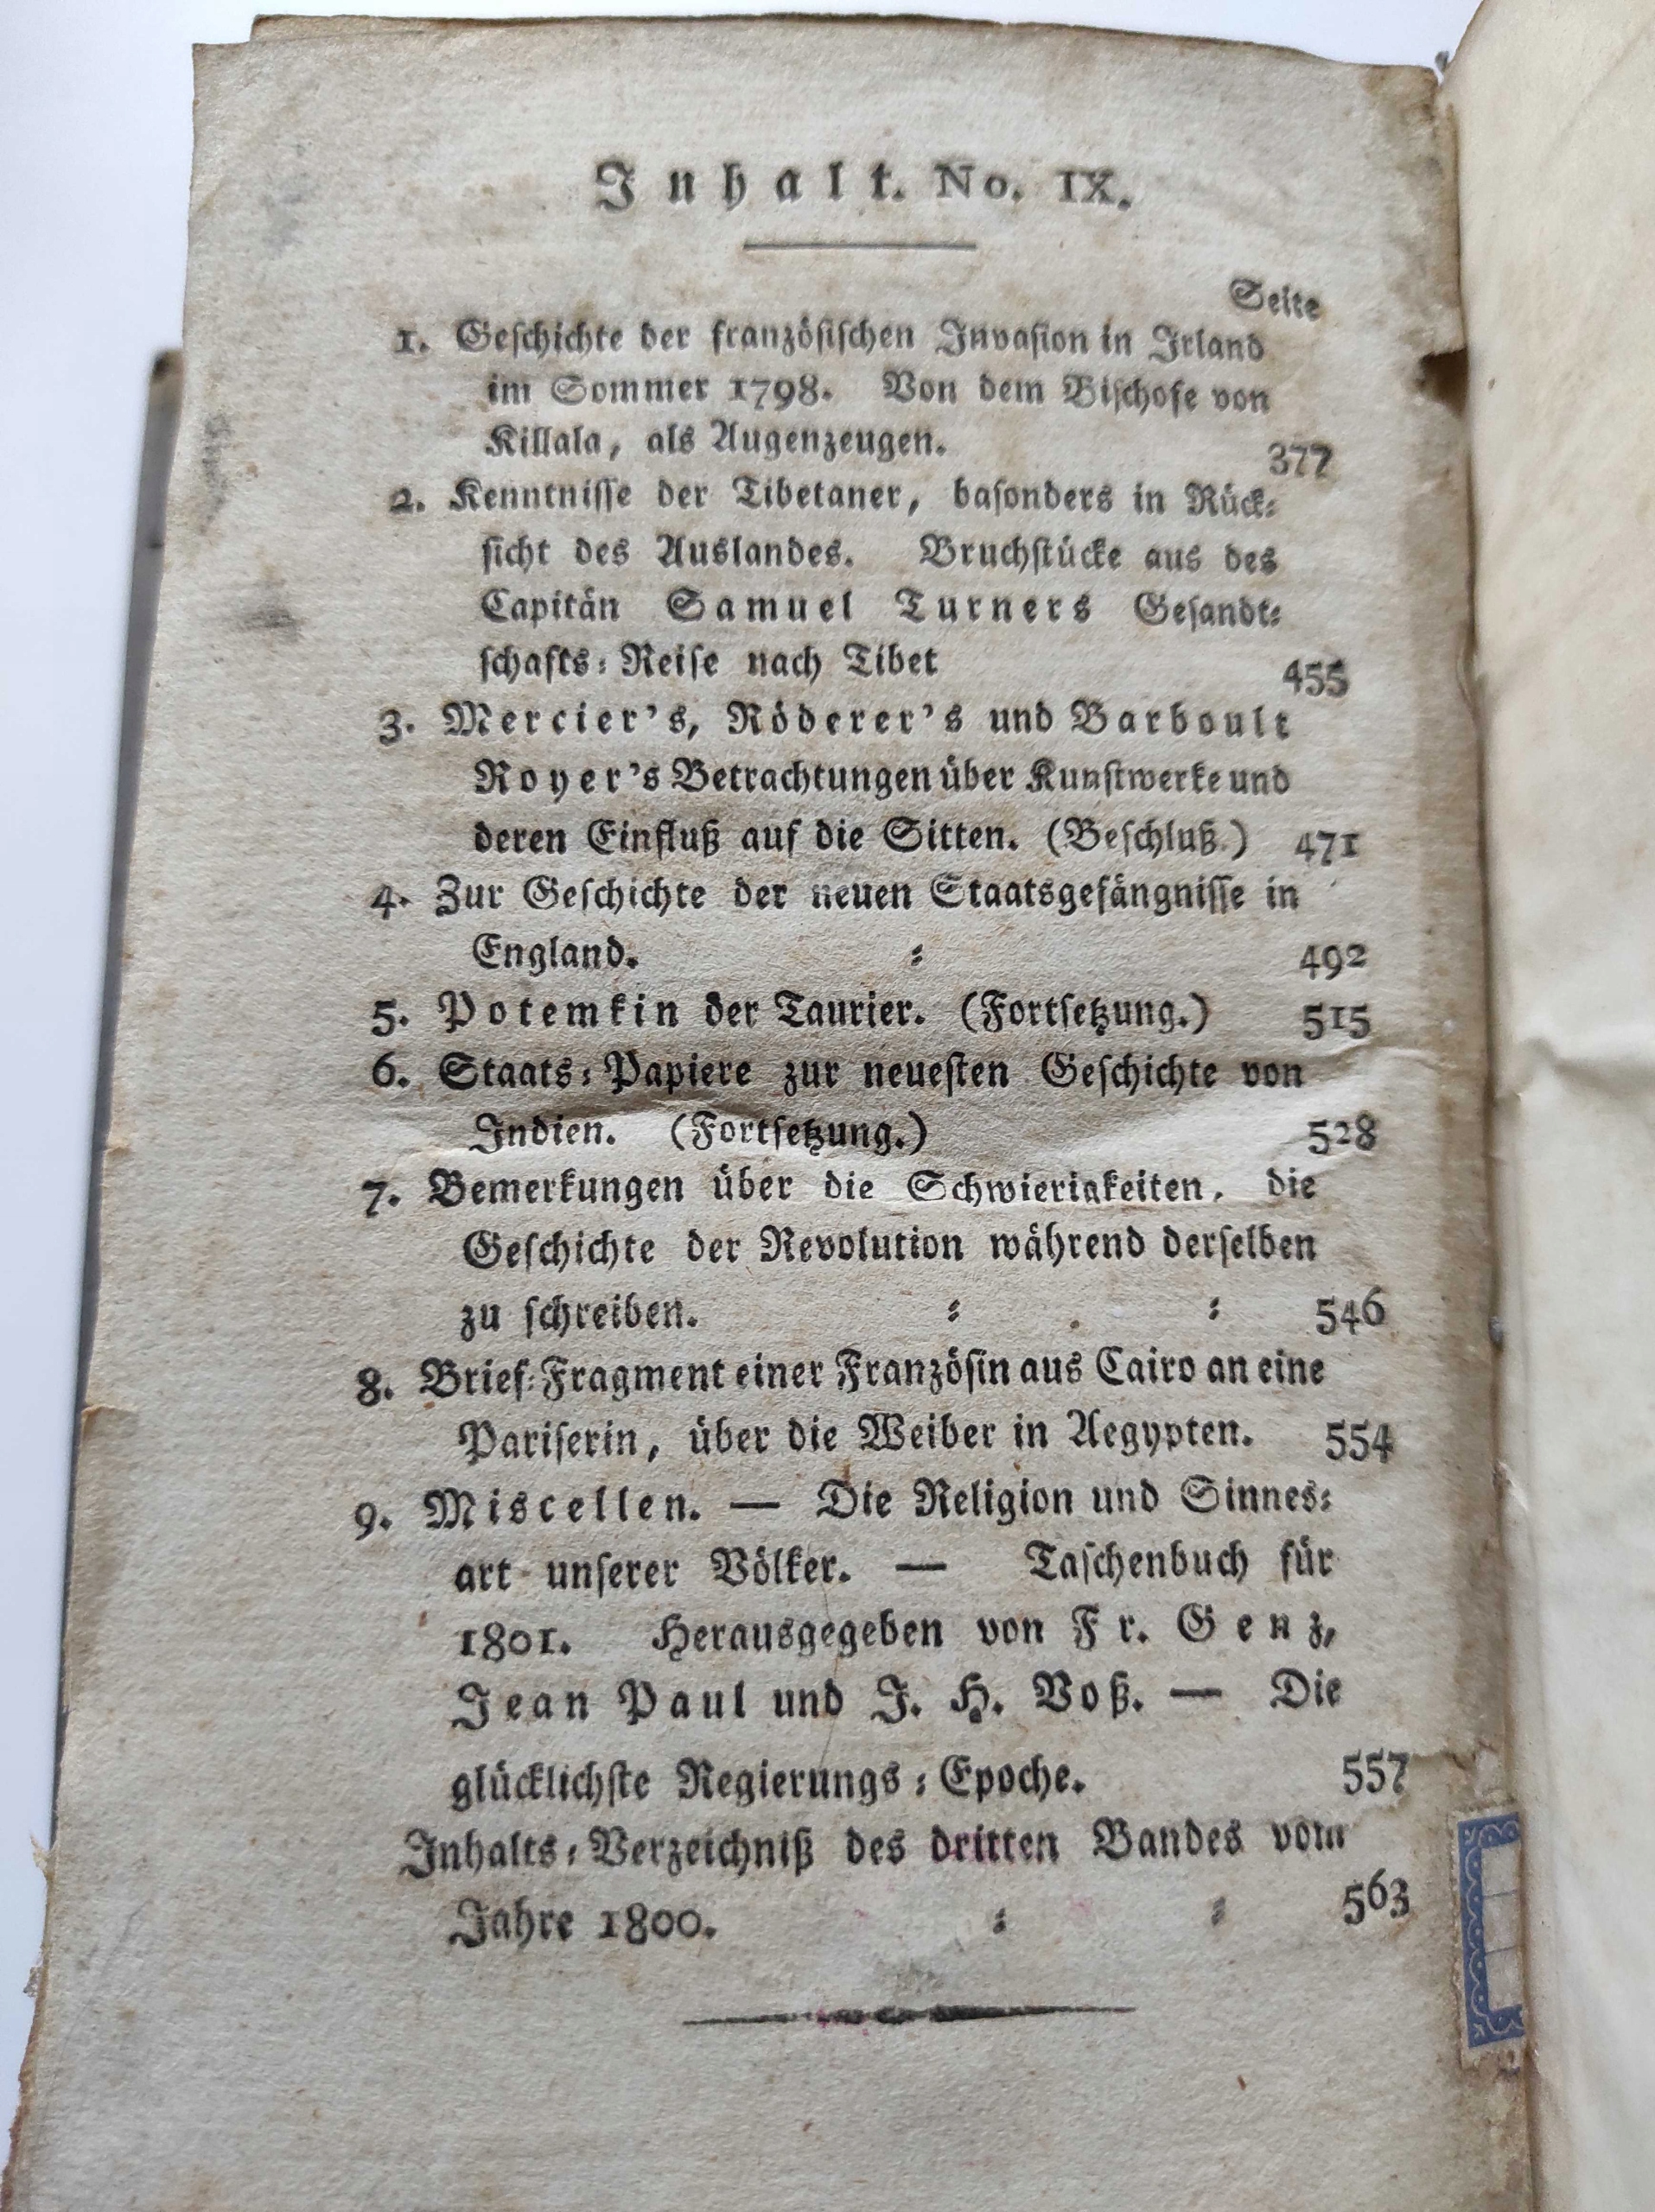 Inhalt. No. IX.
Seite
1. Geſchichte der franzöſiſchen Invaſion in Irland
im Sommer 1798. Von dem Biſchofe von
Killala, als Augenzeugen. 377
2. Kenntniſſe der Tibetaner, baſonders in Rück⸗
ſicht des Auslandes. Bruchſtücke aus des
Capitän Samuel Turners Geſandt⸗
ſchafts⸗Reiſe nach Tibet 455
3. Mercier's, Röderer's und Barboult
Royer's Betrachtungen über Kunſtwerke und
deren Einfluß auf die Sitten. (Beſchluß.) 471
4. Zur Geſchichte der neuen Staatsgefängniſſe in
England. ⸗ 492
5. Potemkin der Taurier. (Fortſetzung.) 515
6. Staats⸗Papiere zur neueſten Geſchichte von
Indien. (Fortſetzung.) 528
7. Bemerkungen über die Schwierigkeiten, die
Geſchichte der Revolution während derſelben
zu ſchreiben. ⸗ ⸗ 546
8. Brief⸗Fragment einer Franzöſin aus Cairo an eine
Pariſerin, über die Weiber in Aegypten. 554
9. Miscellen. — Die Religion und Sinnes⸗
art unſerer Völker. — Taſchenbuch für
1801. Herausgegeben von Fr. Genz,
Jean Paul und J. H. Voß. — Die
glücklichſte Regierungs⸗Epoche. 557
Inhalts⸗Verzeichniß des dritten Bandes vom
Jahre 1800. ⸗ ⸗ 563